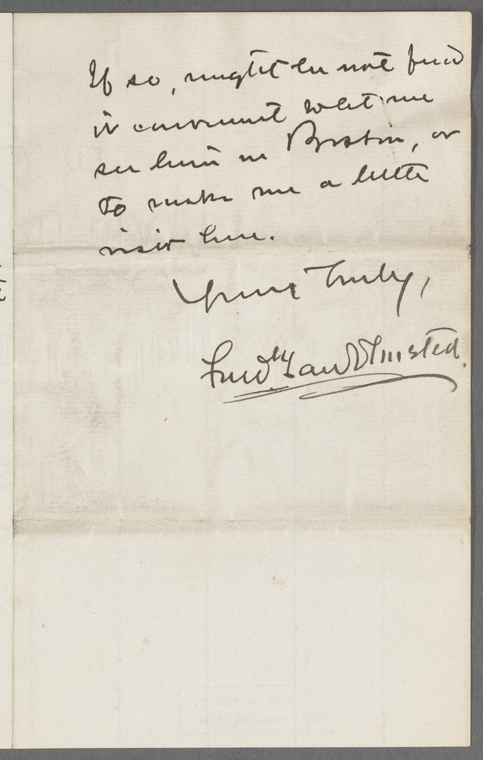 If so, might he not find
it convenient to let me
see him in Boston, or
to make me a little
visit here.
Yours Truly,
Fredk Law Olmsted.